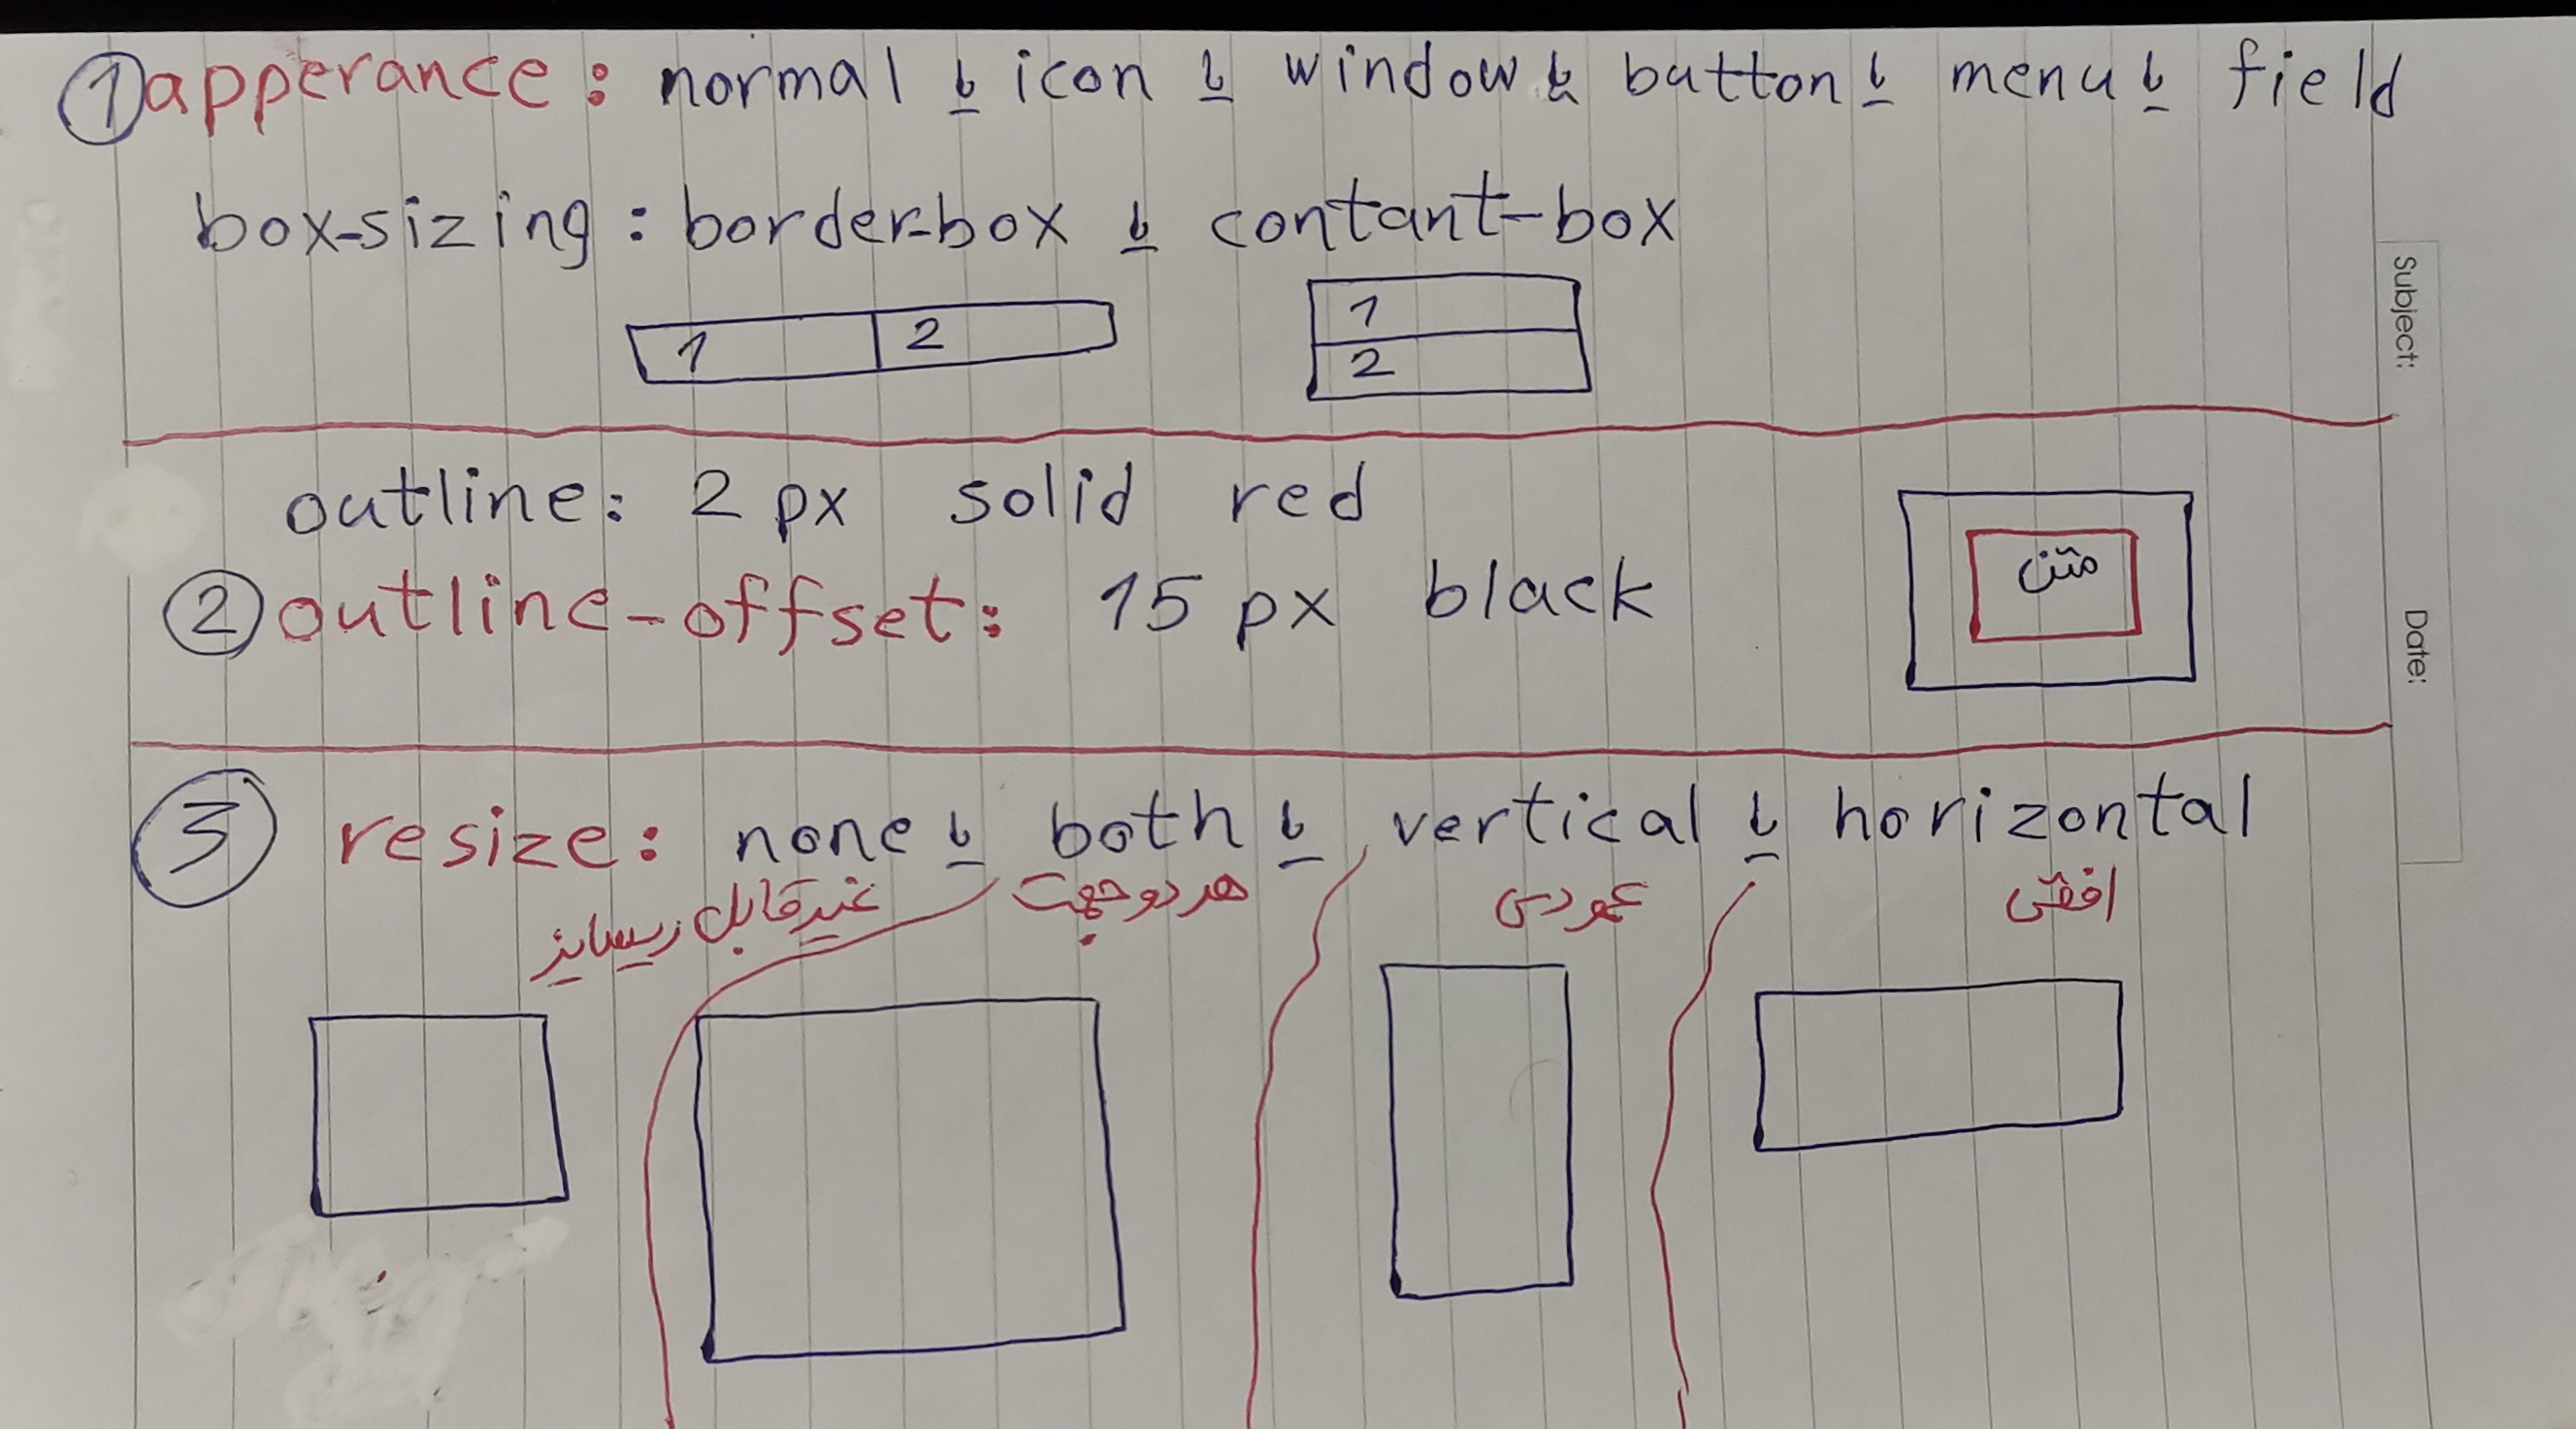 ① apperance: normal یا icon یا window یا button یا menu یا field
box-sizing: border-box یا contant-box
1 2
1
2
outline: 2px solid red
متن
② outline-offset: 15px black
③ resize: none یا both یا vertical یا horizontal
غیرقابل ریسایز هر دو جهت عمودی افقی
Subject:
Date: